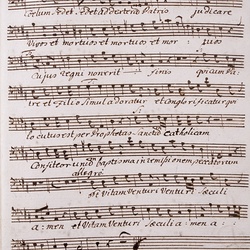 Coelum sedet sedet ad dexteram Patris judicare
Vivos et mortuos et mortuos et mor: tuos
Cujus Regni non erit finis qui cum Pa:
tre et Filio simul adoratur et conglorificatur qui
locutus est per Prophetas sanctam Catholicam
Confiteor unum baptisma in remissionem peccatorum
allegro
et Vitam Venturi Venturi saeculi
a: men et Vitam Venturi saeculi a: men a: